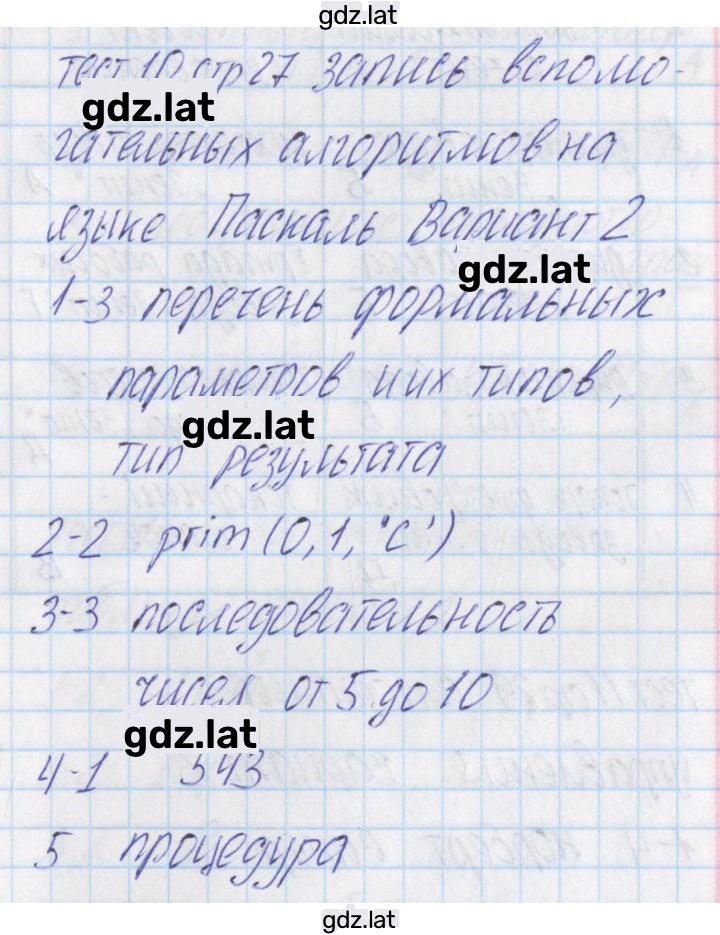 gdz.lat
тест 10 стр 27 запись вспомо-
gdz.lat
гательных алгоритмов на
языке Паскаль Вариант 2
gdz.lat
1-3 перечень формальных
параметров и их типов,
gdz.lat
тип результата
2-2 prim (0, 1, 'c')
3-3 последовательность
чисел от 5 до 10
gdz.lat
4-1 543
5 процедура
gdz.lat